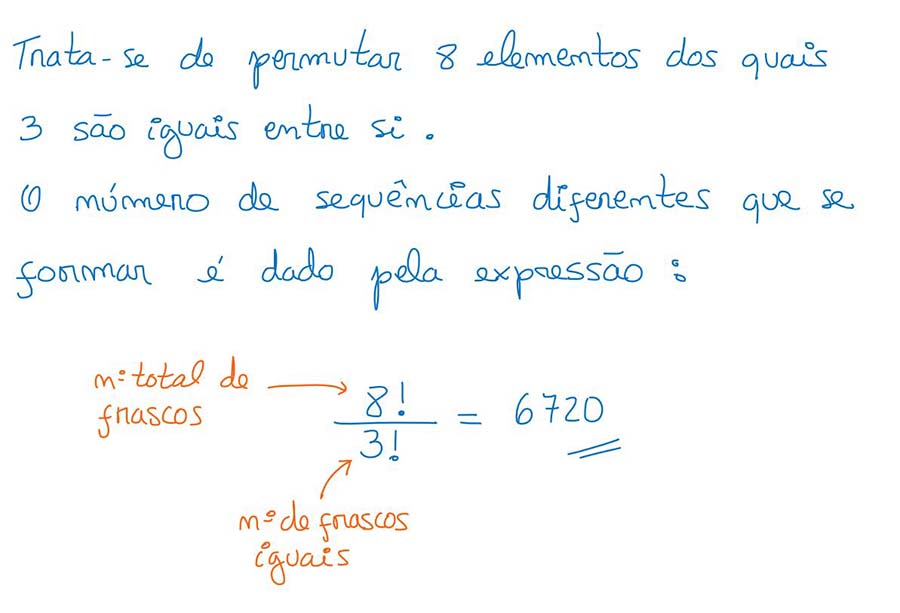 Trata-se de permutar 8 elementos dos quais
3 são iguais entre si.
O número de sequências diferentes que se
formar é dado pela expressão:
nº total de
frascos
8!
3!
= 6720
nº de frascos
iguais